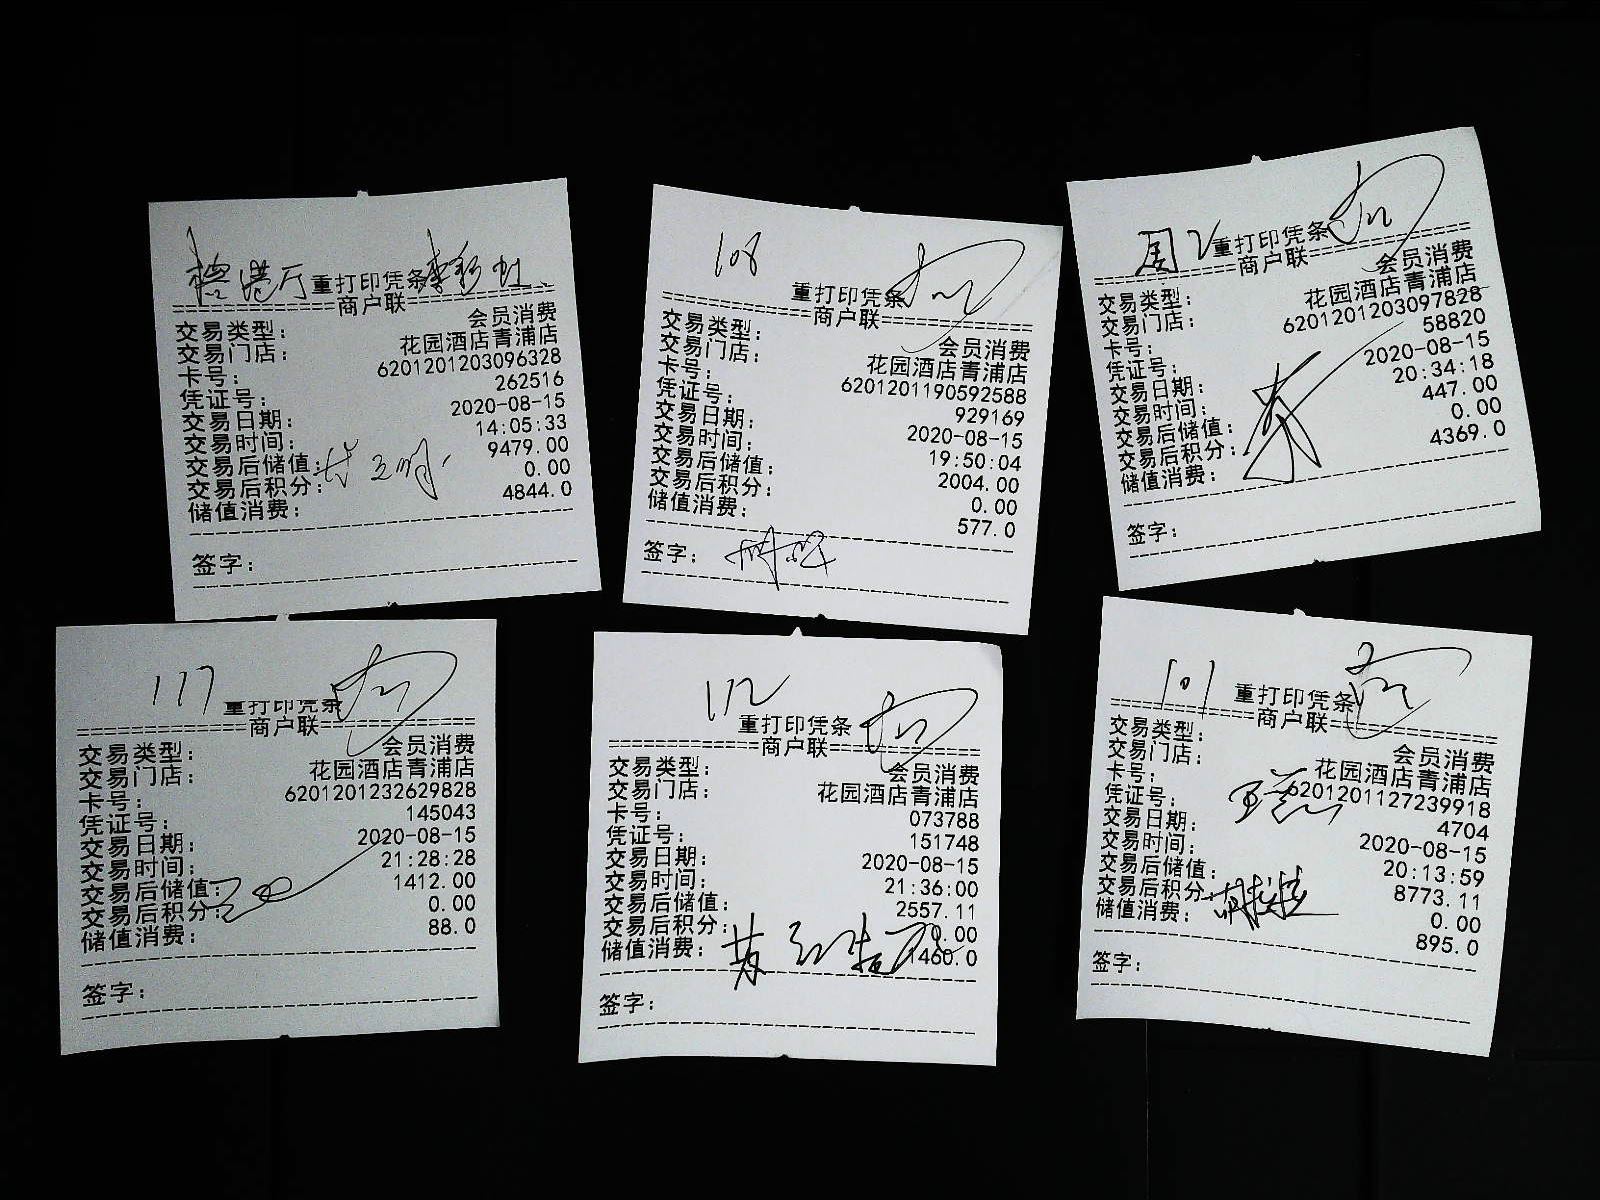 重打印凭条
商户联
交易类型： 会员消费
交易门店： 花园酒店青浦店
卡号： 6201201203096328
凭证号： 262516
交易日期： 2020-08-15
交易时间： 14:05:33
交易后储值： 9479.00
交易后积分： 0.00
储值消费： 4844.0
签字：
108
重打印凭条
商户联
交易类型： 会员消费
交易门店： 花园酒店青浦店
卡号： 6201201190592588
凭证号： 929169
交易日期： 2020-08-15
交易时间： 19:50:04
交易后储值： 2004.00
交易后积分： 0.00
储值消费： 577.0
签字：
周
重打印凭条
商户联
交易类型： 会员消费
交易门店： 花园酒店青浦店
卡号： 6201201203097828
凭证号： 58820
交易日期： 2020-08-15
交易时间： 20:34:18
交易后储值： 447.00
交易后积分： 0.00
储值消费： 4369.0
签字：
117
重打印凭条
商户联
交易类型： 会员消费
交易门店： 花园酒店青浦店
卡号： 6201201232629828
凭证号： 145043
交易日期： 2020-08-15
交易时间： 21:28:28
交易后储值： 1412.00
交易后积分： 0.00
储值消费： 88.0
签字：
112
重打印凭条
商户联
交易类型： 会员消费
交易门店： 花园酒店青浦店
卡号： 073788
凭证号： 151748
交易日期： 2020-08-15
交易时间： 21:36:00
交易后储值： 2557.11
交易后积分： 0.00
储值消费： 1460.0
签字：
101
重打印凭条
商户联
交易类型： 会员消费
交易门店： 花园酒店青浦店
卡号： 6201201127239918
凭证号： 4704
交易日期： 2020-08-15
交易时间： 20:13:59
交易后储值： 8773.11
交易后积分： 0.00
储值消费： 895.0
签字：